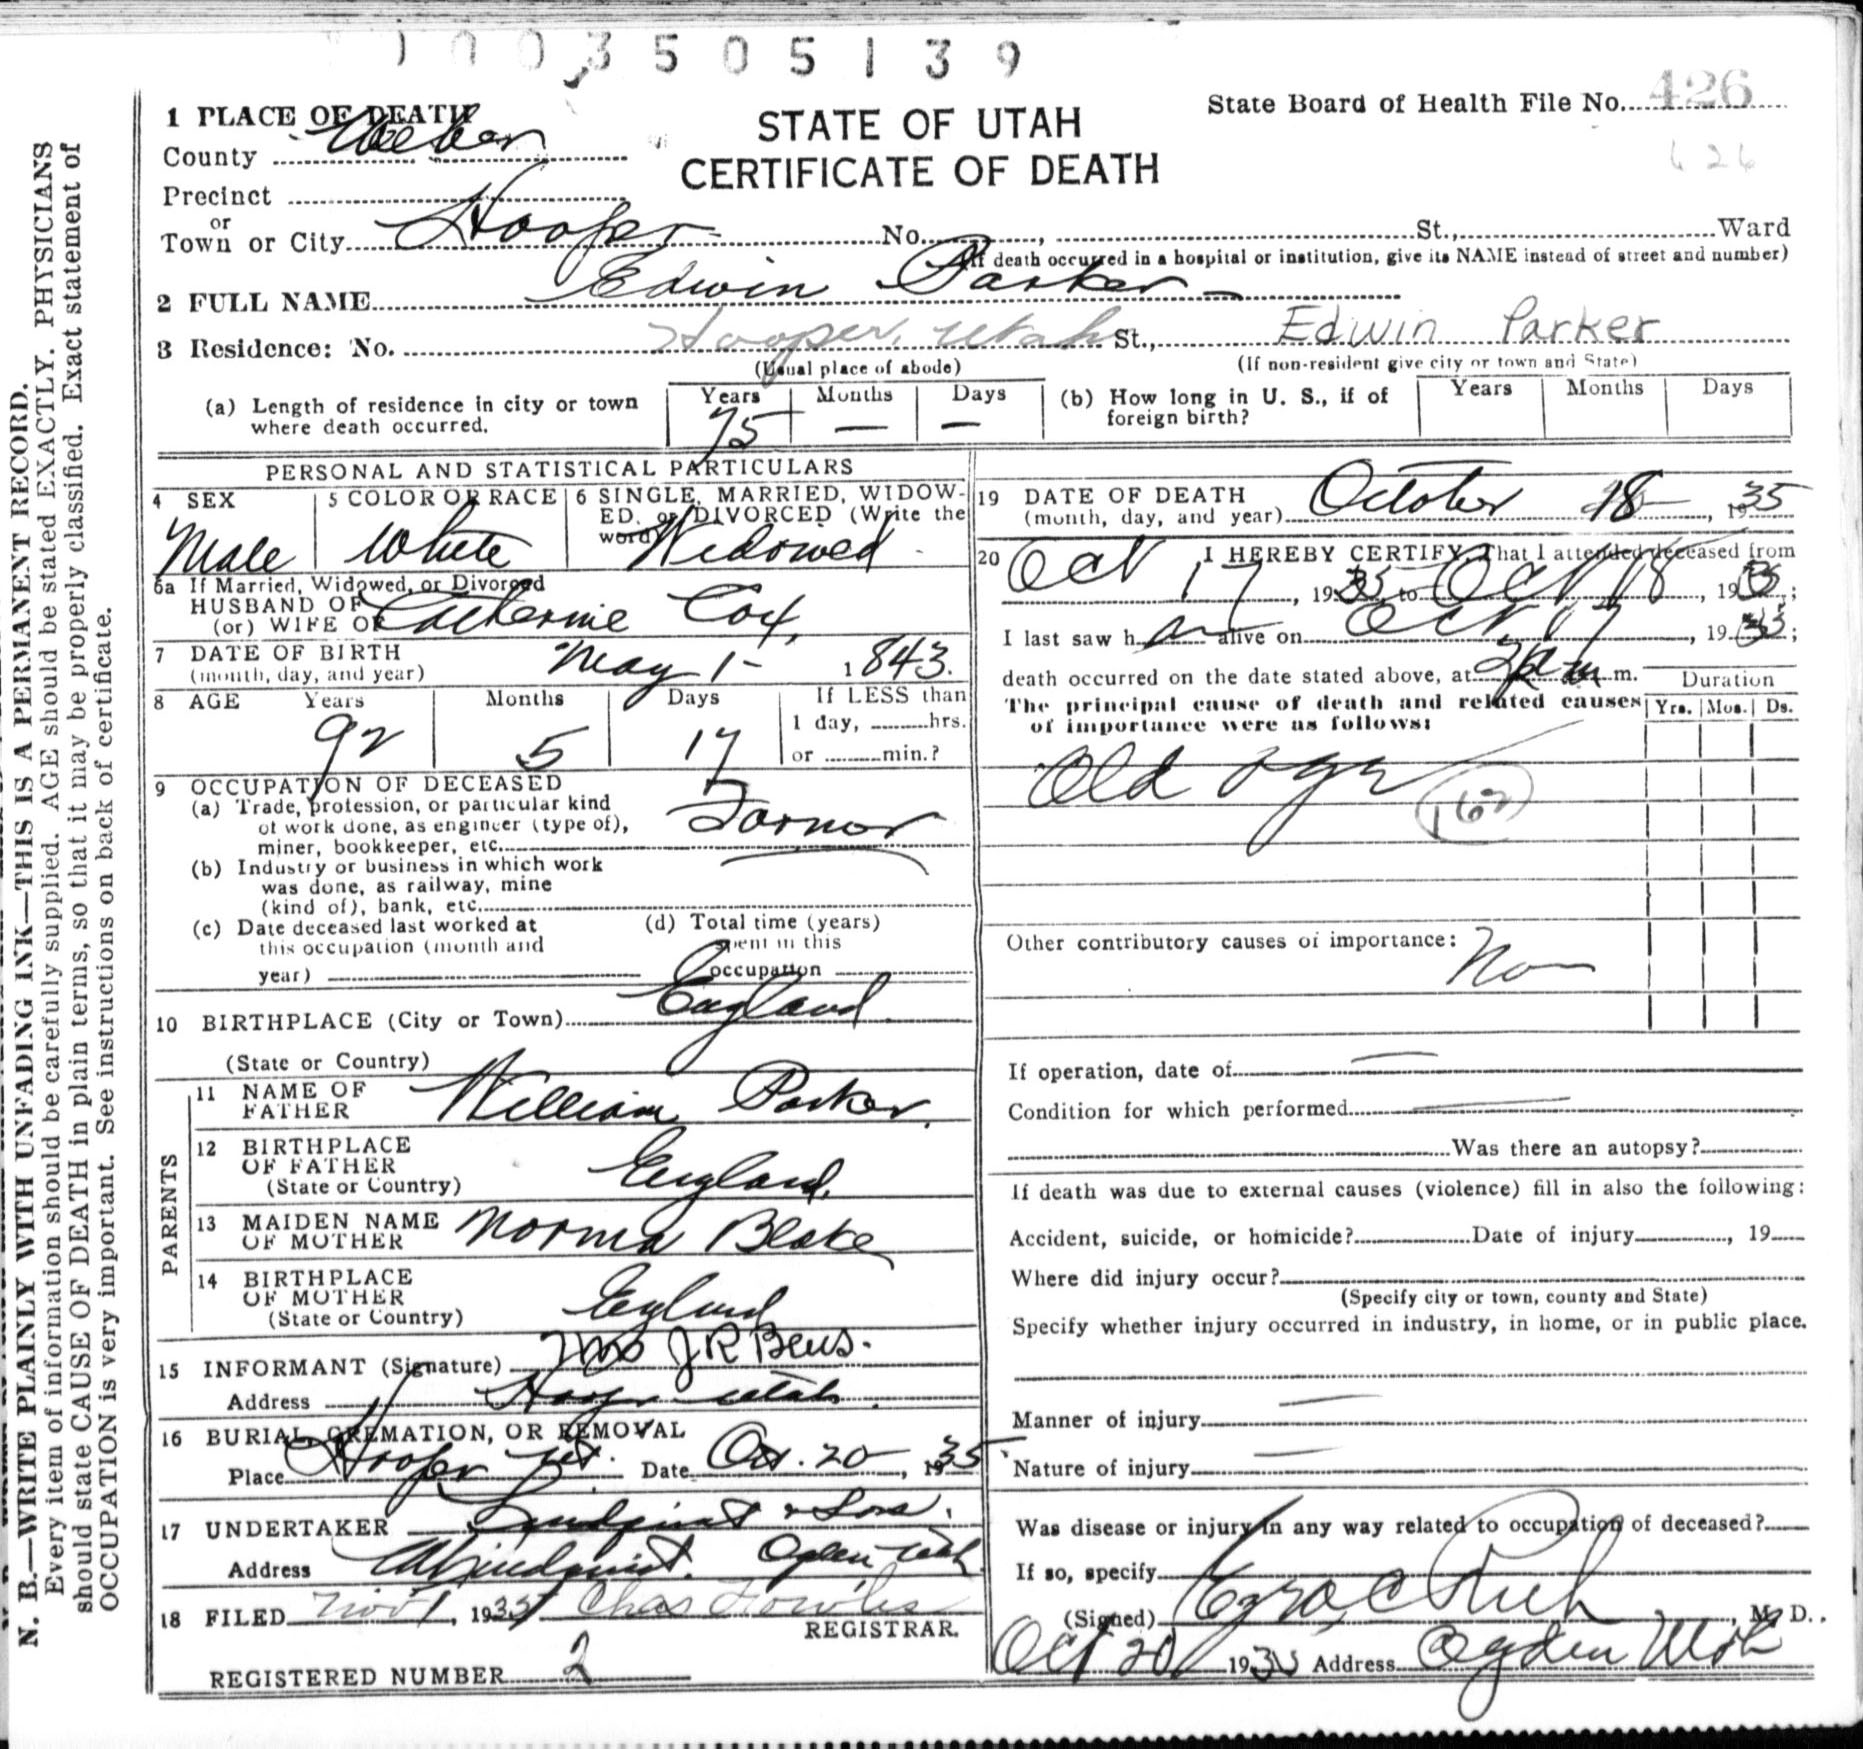 1003505139
State Board of Health File No. 426
626
STATE OF UTAH
CERTIFICATE OF DEATH
1 PLACE OF DEATH
County Weber
Precinct
or
Town or City Hooper No. , St., Ward
(If death occurred in a hospital or institution, give its NAME instead of street and number)
2 FULL NAME Edwin Parker
3 Residence: No. Hooper, Utah St., Edwin Parker
(Usual place of abode) (If non-resident give city or town and State)
(a) Length of residence in city or town where death occurred. Years 75 Months — Days —
(b) How long in U. S., if of foreign birth? Years Months Days
PERSONAL AND STATISTICAL PARTICULARS
4 SEX Male
5 COLOR OR RACE White
6 SINGLE, MARRIED, WIDOWED, or DIVORCED (Write the word) Widowed
6a If Married, Widowed, or Divorced
HUSBAND OF
(or) WIFE OF Catherine Cox
7 DATE OF BIRTH
(month, day, and year) May 1 - 1843.
8 AGE Years 92 Months 5 Days 17
If LESS than
1 day, hrs.
or min.?
9 OCCUPATION OF DECEASED
(a) Trade, profession, or particular kind
of work done, as engineer (type of),
miner, bookkeeper, etc. Farmer
(b) Industry or business in which work
was done, as railway, mine
(kind of), bank, etc.
(c) Date deceased last worked at
this occupation (month and
year)
(d) Total time (years)
spent in this
occupation
10 BIRTHPLACE (City or Town) England
(State or Country)
PARENTS
11 NAME OF
FATHER William Parker
12 BIRTHPLACE
OF FATHER
(State or Country) England
13 MAIDEN NAME
OF MOTHER Norma Blake
14 BIRTHPLACE
OF MOTHER
(State or Country) England
15 INFORMANT (Signature) Mrs J R Beus.
Address Hooper Utah
16 BURIAL, CREMATION, OR REMOVAL
Place Hooper Ut. Date Oct. 20, 1935
17 UNDERTAKER Lindquist & Sons.
Address Lindquist. Ogden Utah
18 FILED Nov 1, 1935 Chas Fowles
REGISTRAR.
REGISTERED NUMBER 2
19 DATE OF DEATH
(month, day, and year) October 18, 1935
20 I HEREBY CERTIFY, That I attended deceased from
Oct 17, 1935, to Oct 18, 1935;
I last saw h alive on Oct 17, 1935;
death occurred on the date stated above, at m.
The principal cause of death and related causes
of importance were as follows:
Duration
Yrs. Mos. Ds.
Old age
162
Other contributory causes of importance:
Non
If operation, date of —
Condition for which performed —
Was there an autopsy?
If death was due to external causes (violence) fill in also the following:
Accident, suicide, or homicide? Date of injury , 19
Where did injury occur?
(Specify city or town, county and State)
Specify whether injury occurred in industry, in home, or in public place.
Manner of injury —
Nature of injury —
Was disease or injury in any way related to occupation of deceased?
If so, specify
(Signed) Ezra C Rich, M. D.
Oct 20 1935 Address Ogden Utah
N. B.—WRITE PLAINLY WITH UNFADING INK—THIS IS A PERMANENT RECORD.
Every item of information should be carefully supplied. AGE should be stated EXACTLY. PHYSICIANS
should state CAUSE OF DEATH in plain terms, so that it may be properly classified. Exact statement of
OCCUPATION is very important. See instructions on back of certificate.